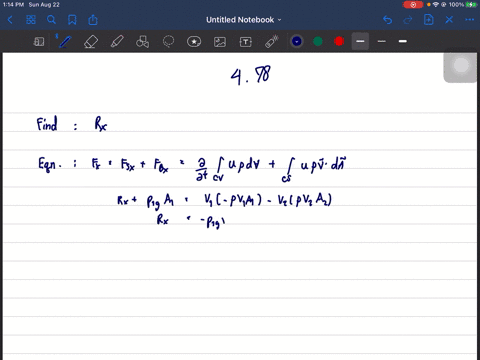 1:14 PM Sun Aug 22
100%
Untitled Notebook
4.78
Find : Rx
Eqn. : Fx = Fsx + FBx = ∂/∂t ∫cv u ρ dV + ∫cs u ρ V⃗ · dA⃗
Rx + p1g A1 = V1 (-ρV1A1) - V2 (ρV2 A2)
Rx = -p1g